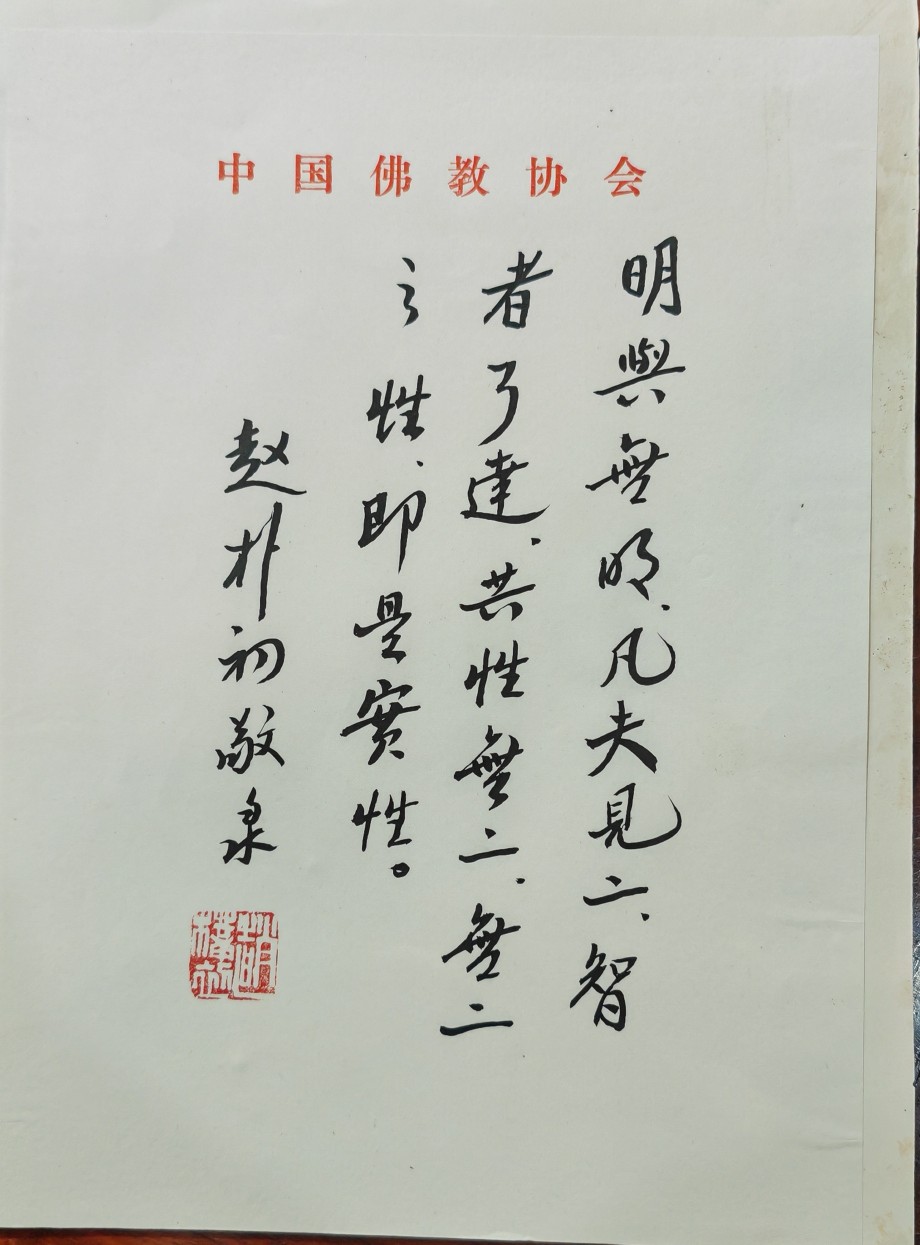 中国佛教协会
明與無明、凡夫見二、智
者了達、其性無二、無二
之性、即是實性。
赵朴初敬录
趙樸初